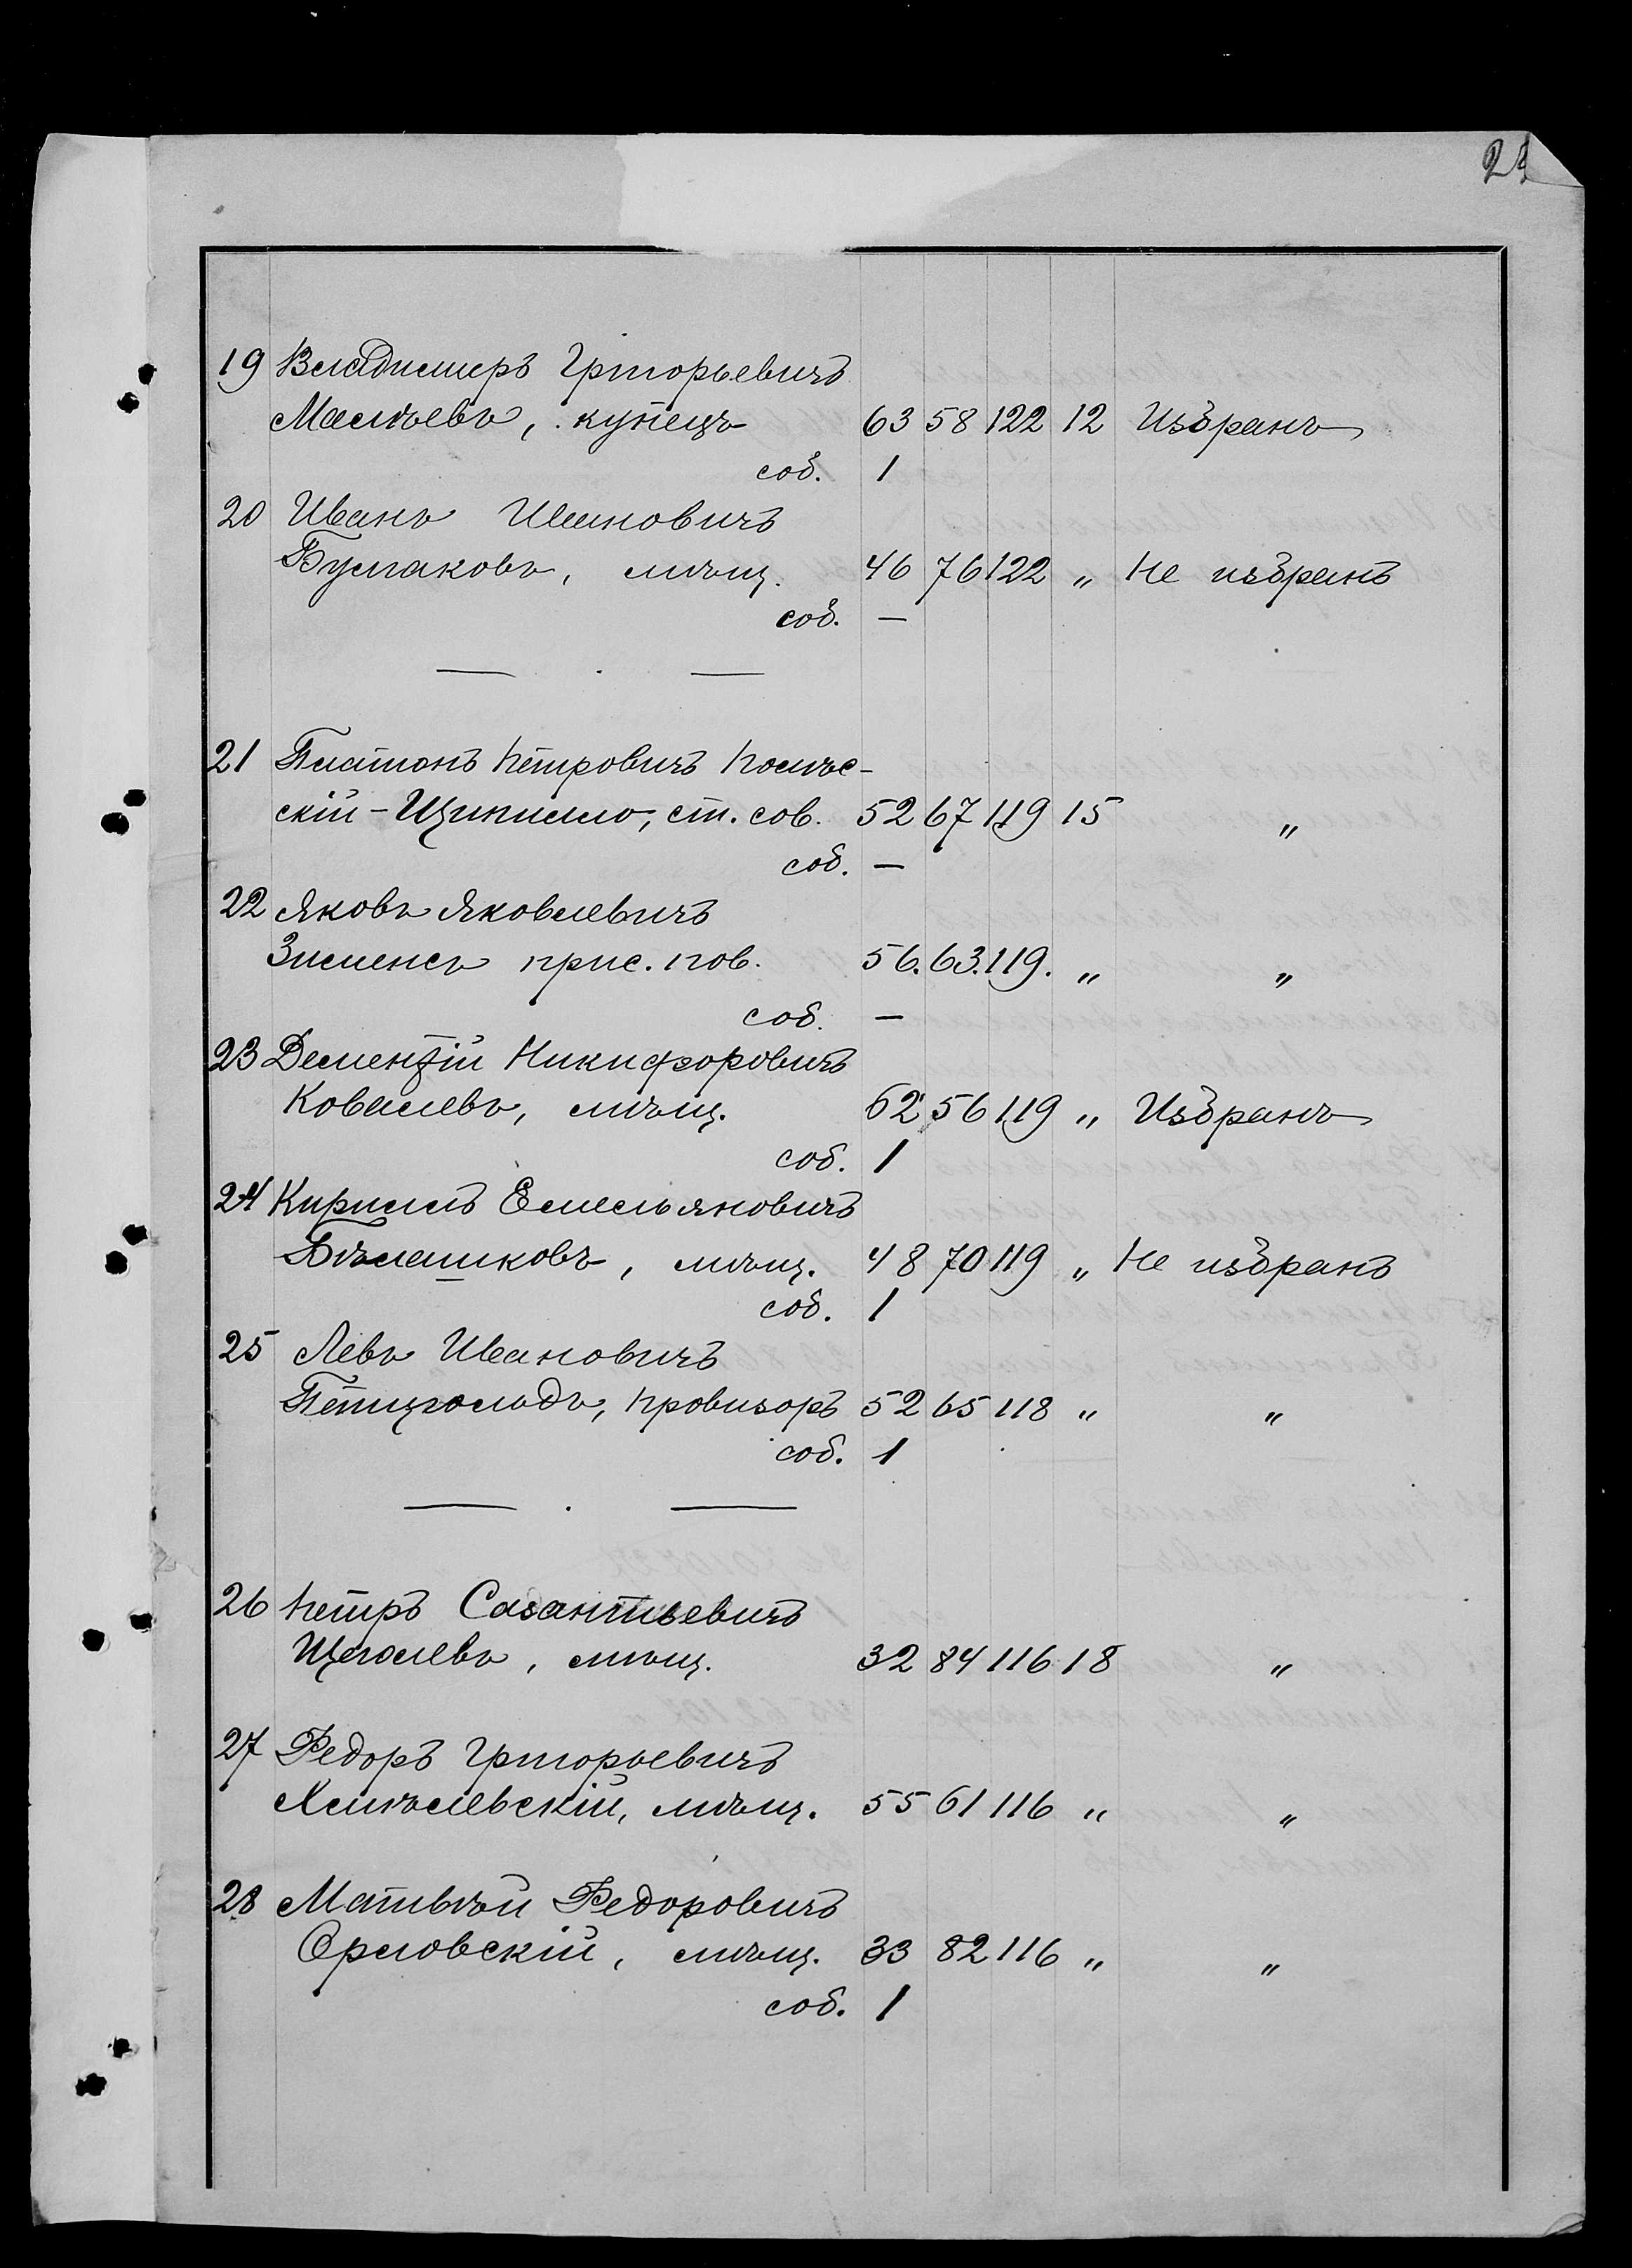 19 Владимиръ Григорьевичъ
Маслѣевъ, купецъ 63 58 122 12 Избранъ
соб. 1
20 Иванъ Ивановичъ
Булаковъ, мѣщ. 46 76 122 „ Не избранъ
соб. —
21 Платонъ Петровичъ
скій-Щипилло, ст. сов. 52 67 119 15 „
соб. —
22 Яковъ Яковлевичъ
прис. пов. 56. 63. 119. „ „
соб. —
23 Дементій Никифоровичъ
Ковалевъ, мѣщ. 62 56 119 „ Избранъ
соб. 1
24 Кириллъ Емельяновичъ
Бѣлашковъ, мѣщ. 48 70 119 „ Не избранъ
соб. 1
25 Левъ Ивановичъ
Петцгольдъ, провизоръ 52 65 118 „ „
соб. 1
26 Петръ
Щеголевъ, мѣщ. 32 84 116 18 „
27 Федоръ Григорьевичъ
Хмѣлевскій, мѣщ. 55 61 116 „ „
28 Матвѣй Федоровичъ
Орловскій, мѣщ. 33 82 116 „ „
соб. 1